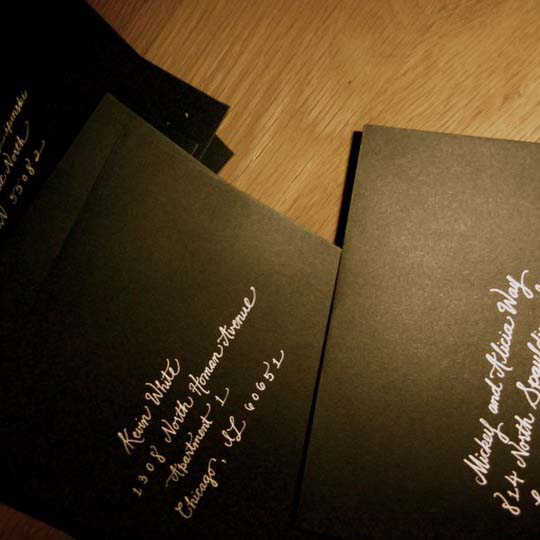 North
55082
Kevin White
1308 North Homan Avenue
Apartment 1
Chicago, IL 60651
Mickey and Alicia Way
814 North Spaulding